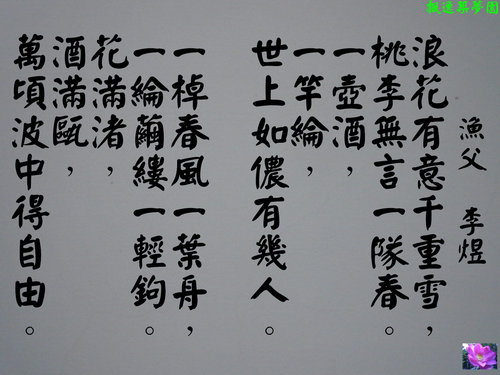 漁父 李煜
浪花有意千重雪，
桃李無言一隊春。
一壺酒，
一竿綸，
世上如儂有幾人。
一棹春風一葉舟，
一綸繭縷一輕鉤。
花滿渚，
酒滿甌，
萬頃波中得自由。